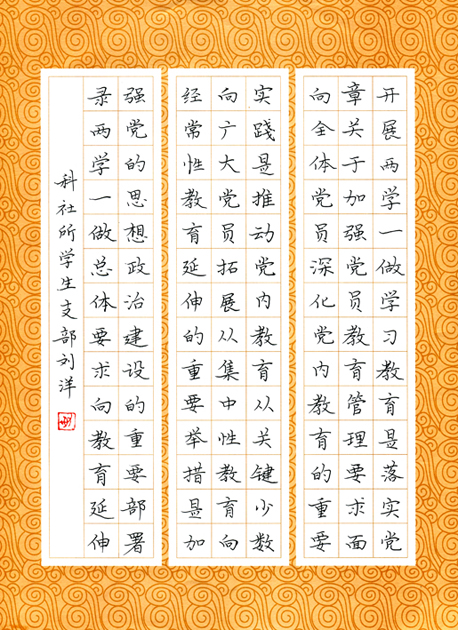 开展两学一做学习教育是落实党
章关于加强党员教育管理要求面
向全体党员深化党内教育的重要
实践是推动党内教育从关键少数
向广大党员拓展从集中性教育向
经常性教育延伸的重要举措是加
强党的思想政治建设的重要部署
录两学一做总体要求向教育延伸
科社所学生支部刘洋